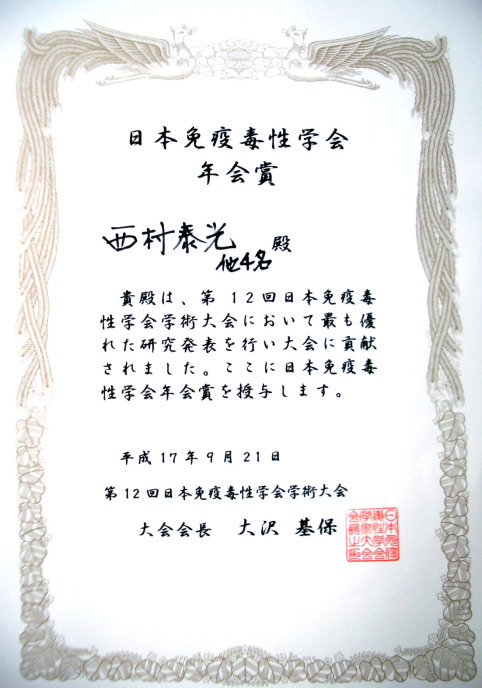 日本免疫毒性学会
年会賞
西村泰光 殿
他4名
貴殿は、第12回日本免疫毒
性学会学術大会において最も優
れた研究発表を行い大会に貢献
されました。ここに日本免疫毒
性学会年会賞を授与します。
平成17年9月21日
第12回日本免疫毒性学会学術大会
大会会長 大沢 基保